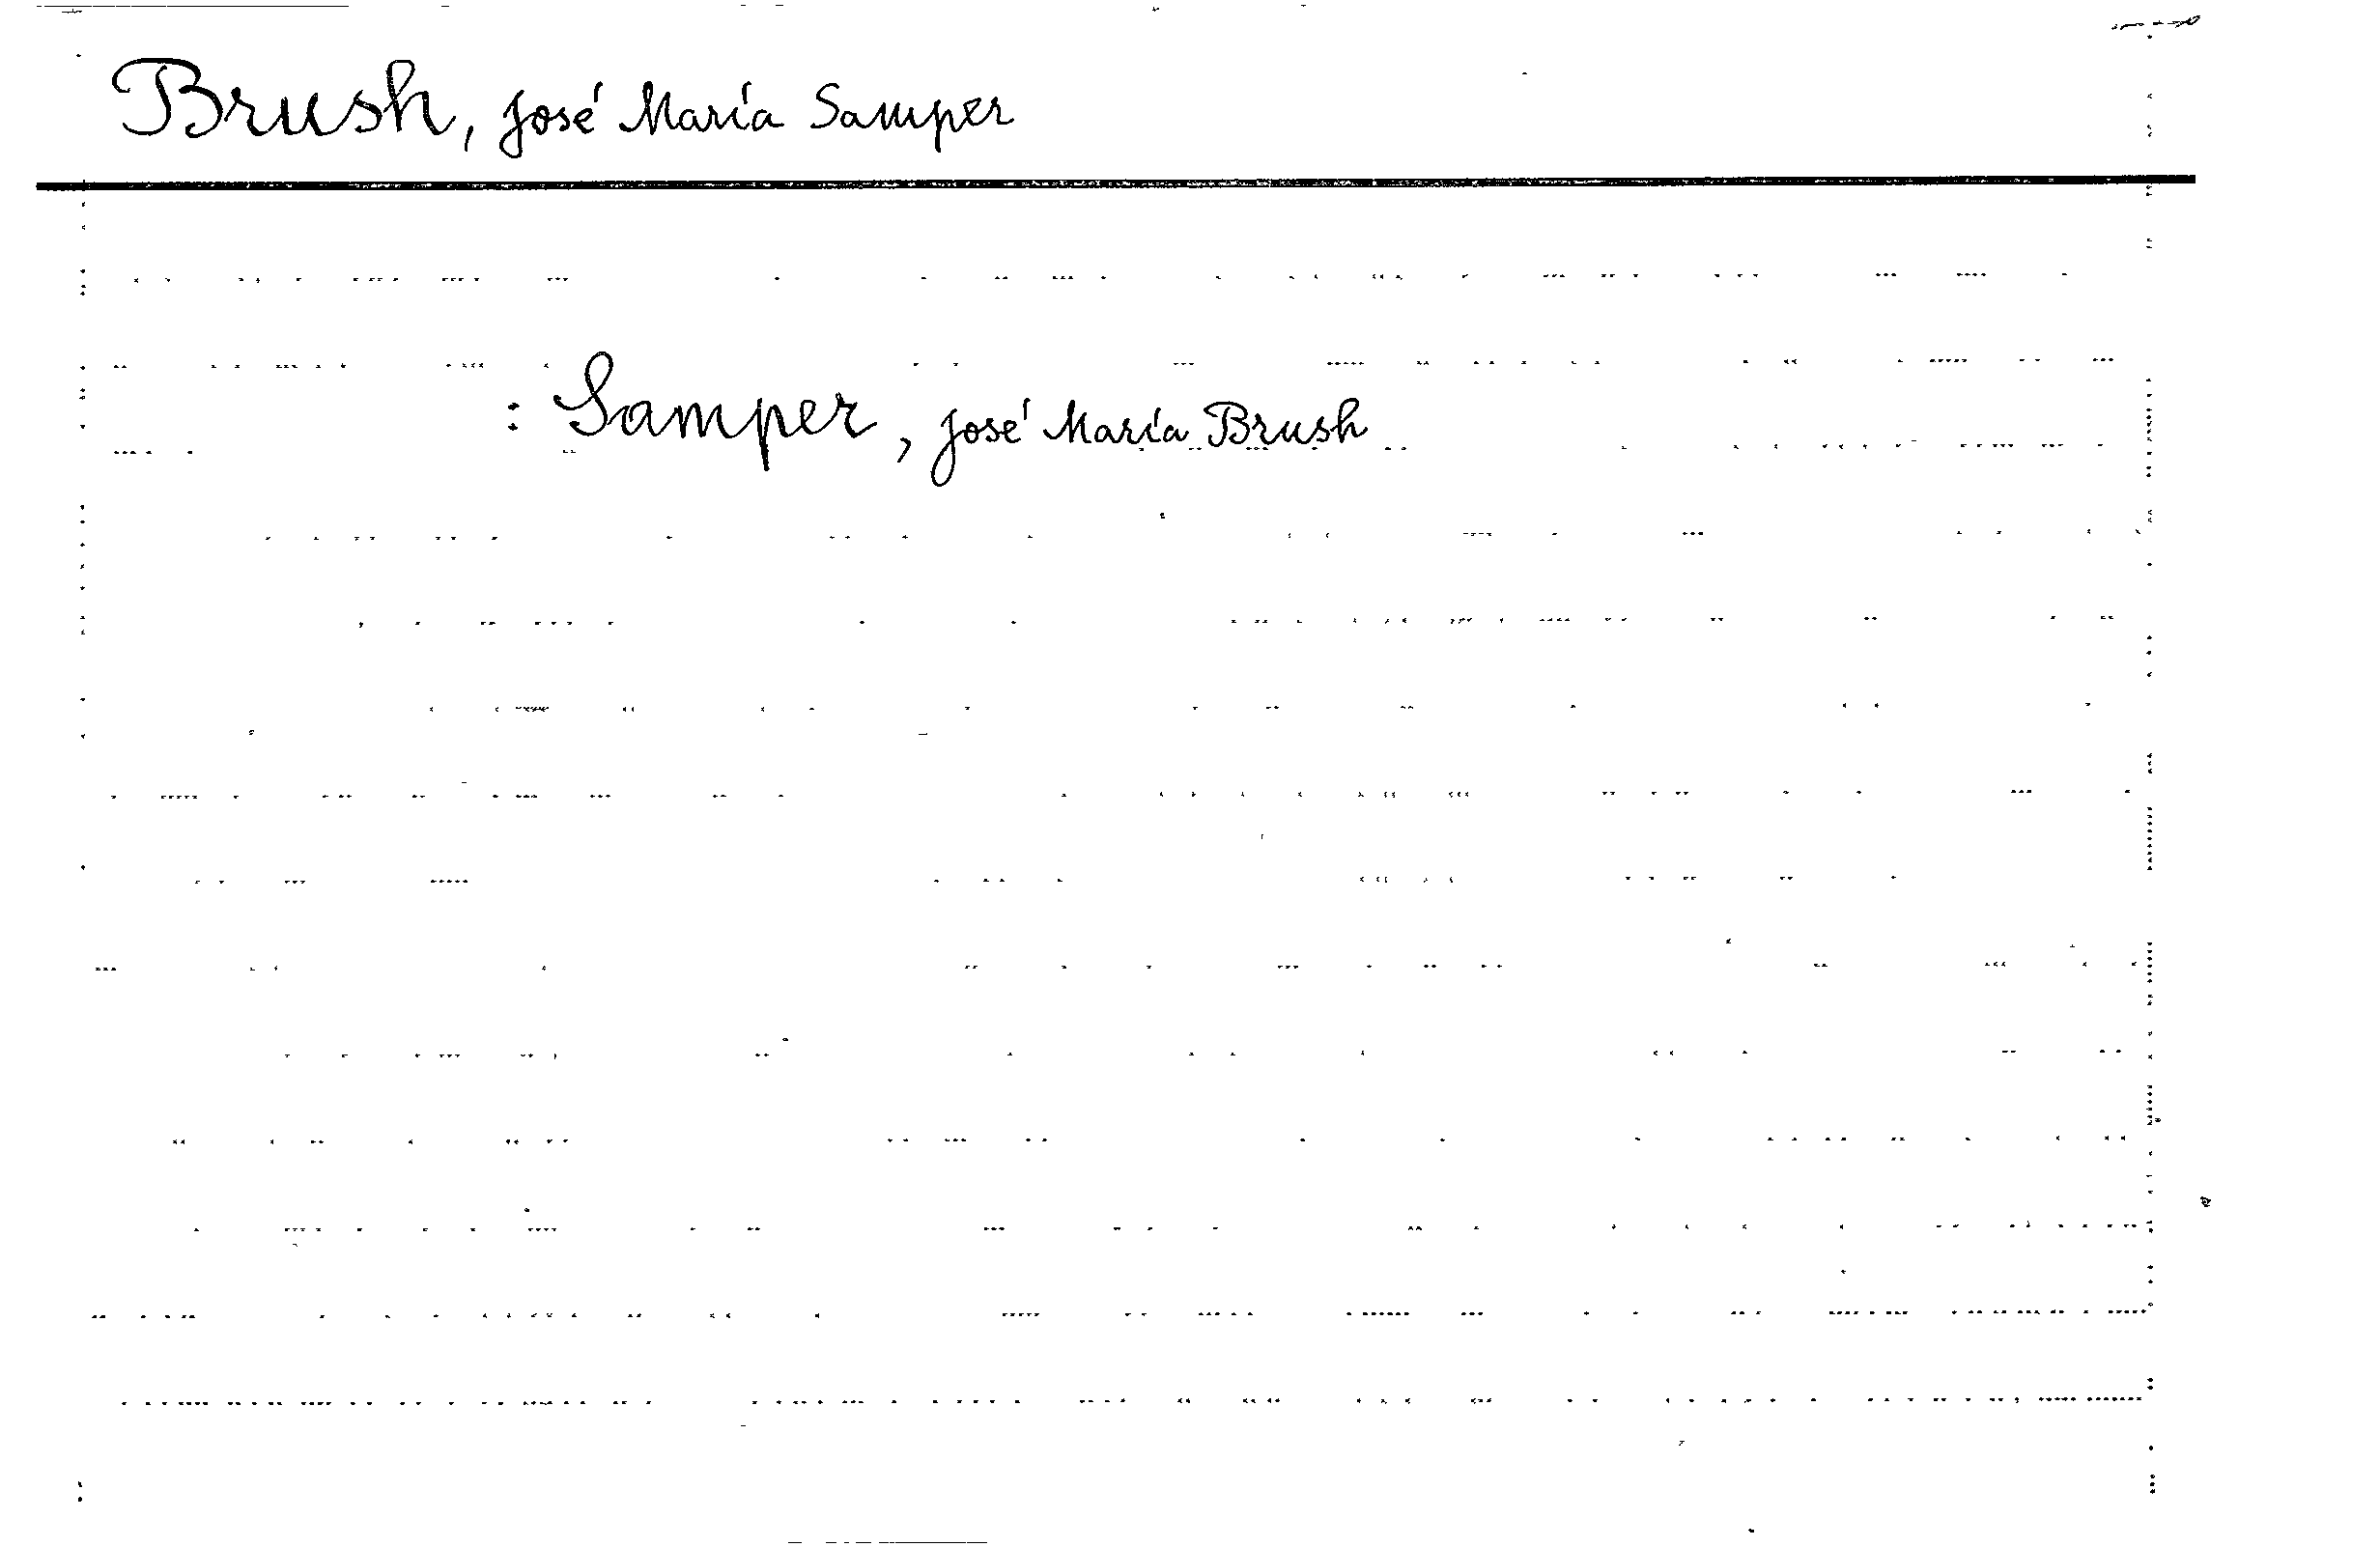 Brush, José María Samper
: Samper, José María Brush